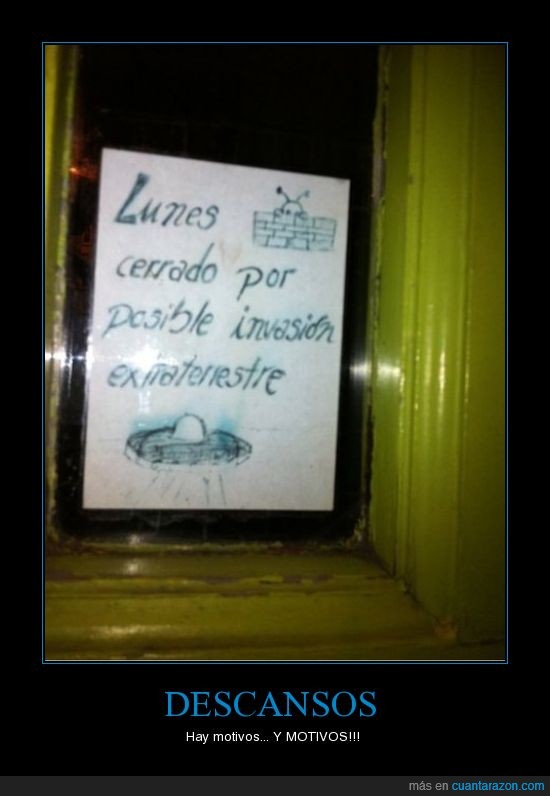 Lunes
cerrado por
posible invasión
extraterrestre
DESCANSOS
Hay motivos... Y MOTIVOS!!!
más en cuantarazon.com